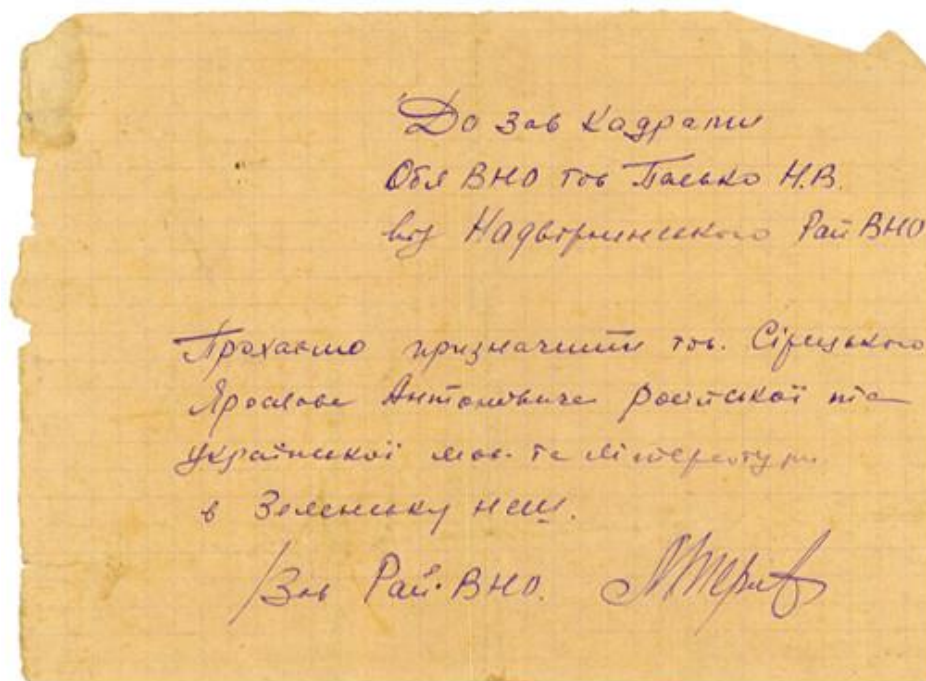 До зав кадрами
Обл ВНО тов Пасько Н.В.
від Надвірнянського Рай ВНО
Прохаємо призначити тов. Сірецького
Ярослава Антоновича російської та
української мов та літератури
в Зеленську нсш.
/Зав Рай.ВНО.